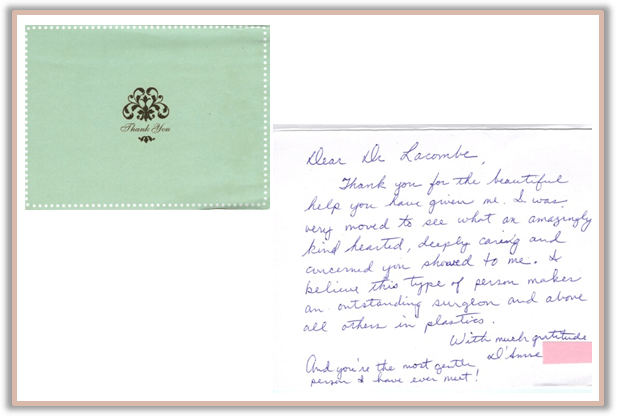 Thank You
Dear Dr Lacombe,
Thank you for the beautiful
help you have given me. I was
very moved to see what an amazingly
kind hearted, deeply caring and
concerned you showed to me. I
believe this type of person makes
an outstanding surgeon and above
all others in plastics.
With much gratitude
D'Anne
And you're the most gentle
person I have ever met!